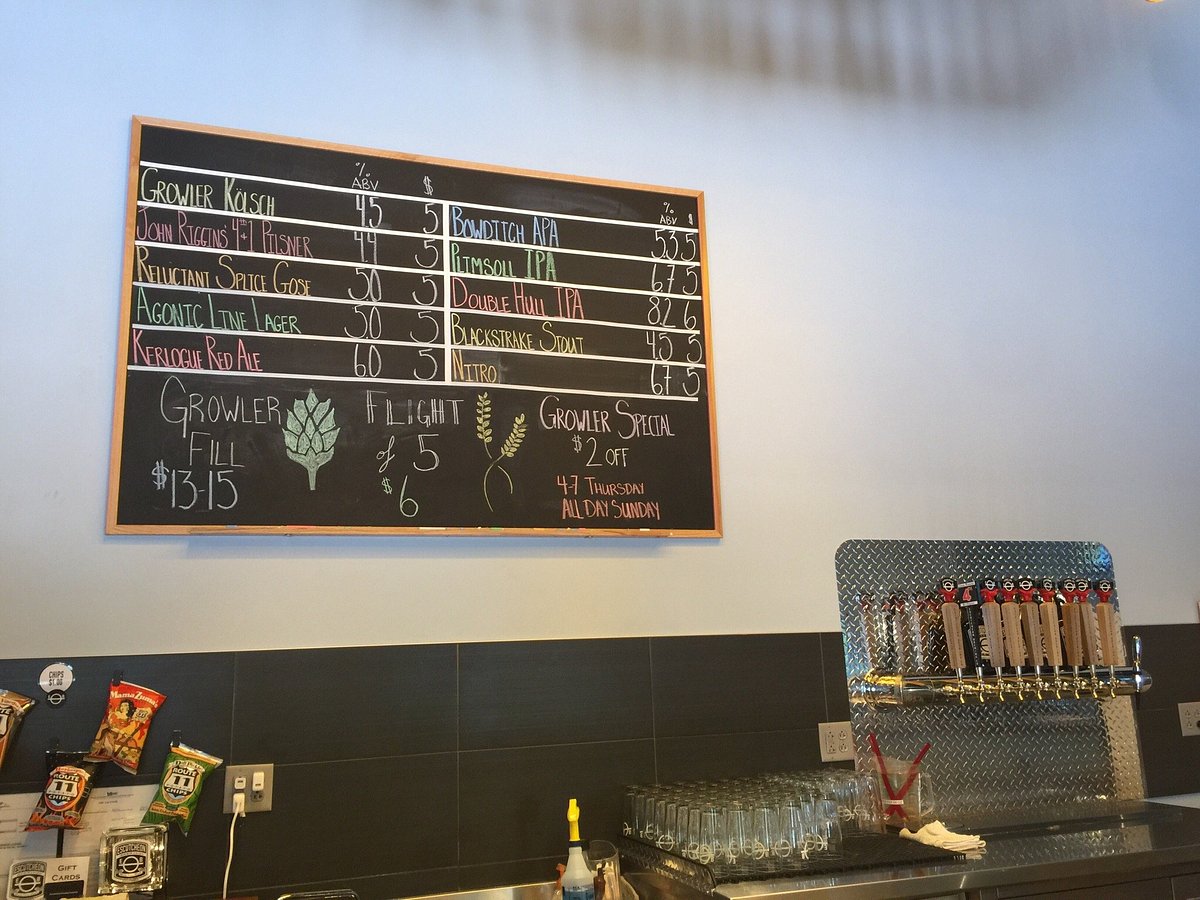 % ABV $
GROWLER KÖLSCH 4.5 5
JOHN RIGGINS' 4th & 1 PILSNER 4.4 5
RELUCTANT SPLICE GOSE 5.0 5
AGONIC LINE LAGER 5.0 5
KERLOGUE RED ALE 6.0 5
% ABV $
BOWDITCH APA 5.3 5
PLIMSOLL IPA 6.7 5
DOUBLE HULL IPA 8.2 6
BLACKSTRAKE STOUT 4.5 5
NITRO 6.7 5
GROWLER
FILL
$13-15
FLIGHT
of 5
$6
GROWLER SPECIAL
$2 OFF
4-7 THURSDAY
ALL DAY SUNDAY
CHIPS
$1.00
Mama Zuma's
ROUTE
11
CHIPS
ROUTE
11
CHIPS
ESCUTCHEON
ESCUTCHEON
GIFT
CARDS
4